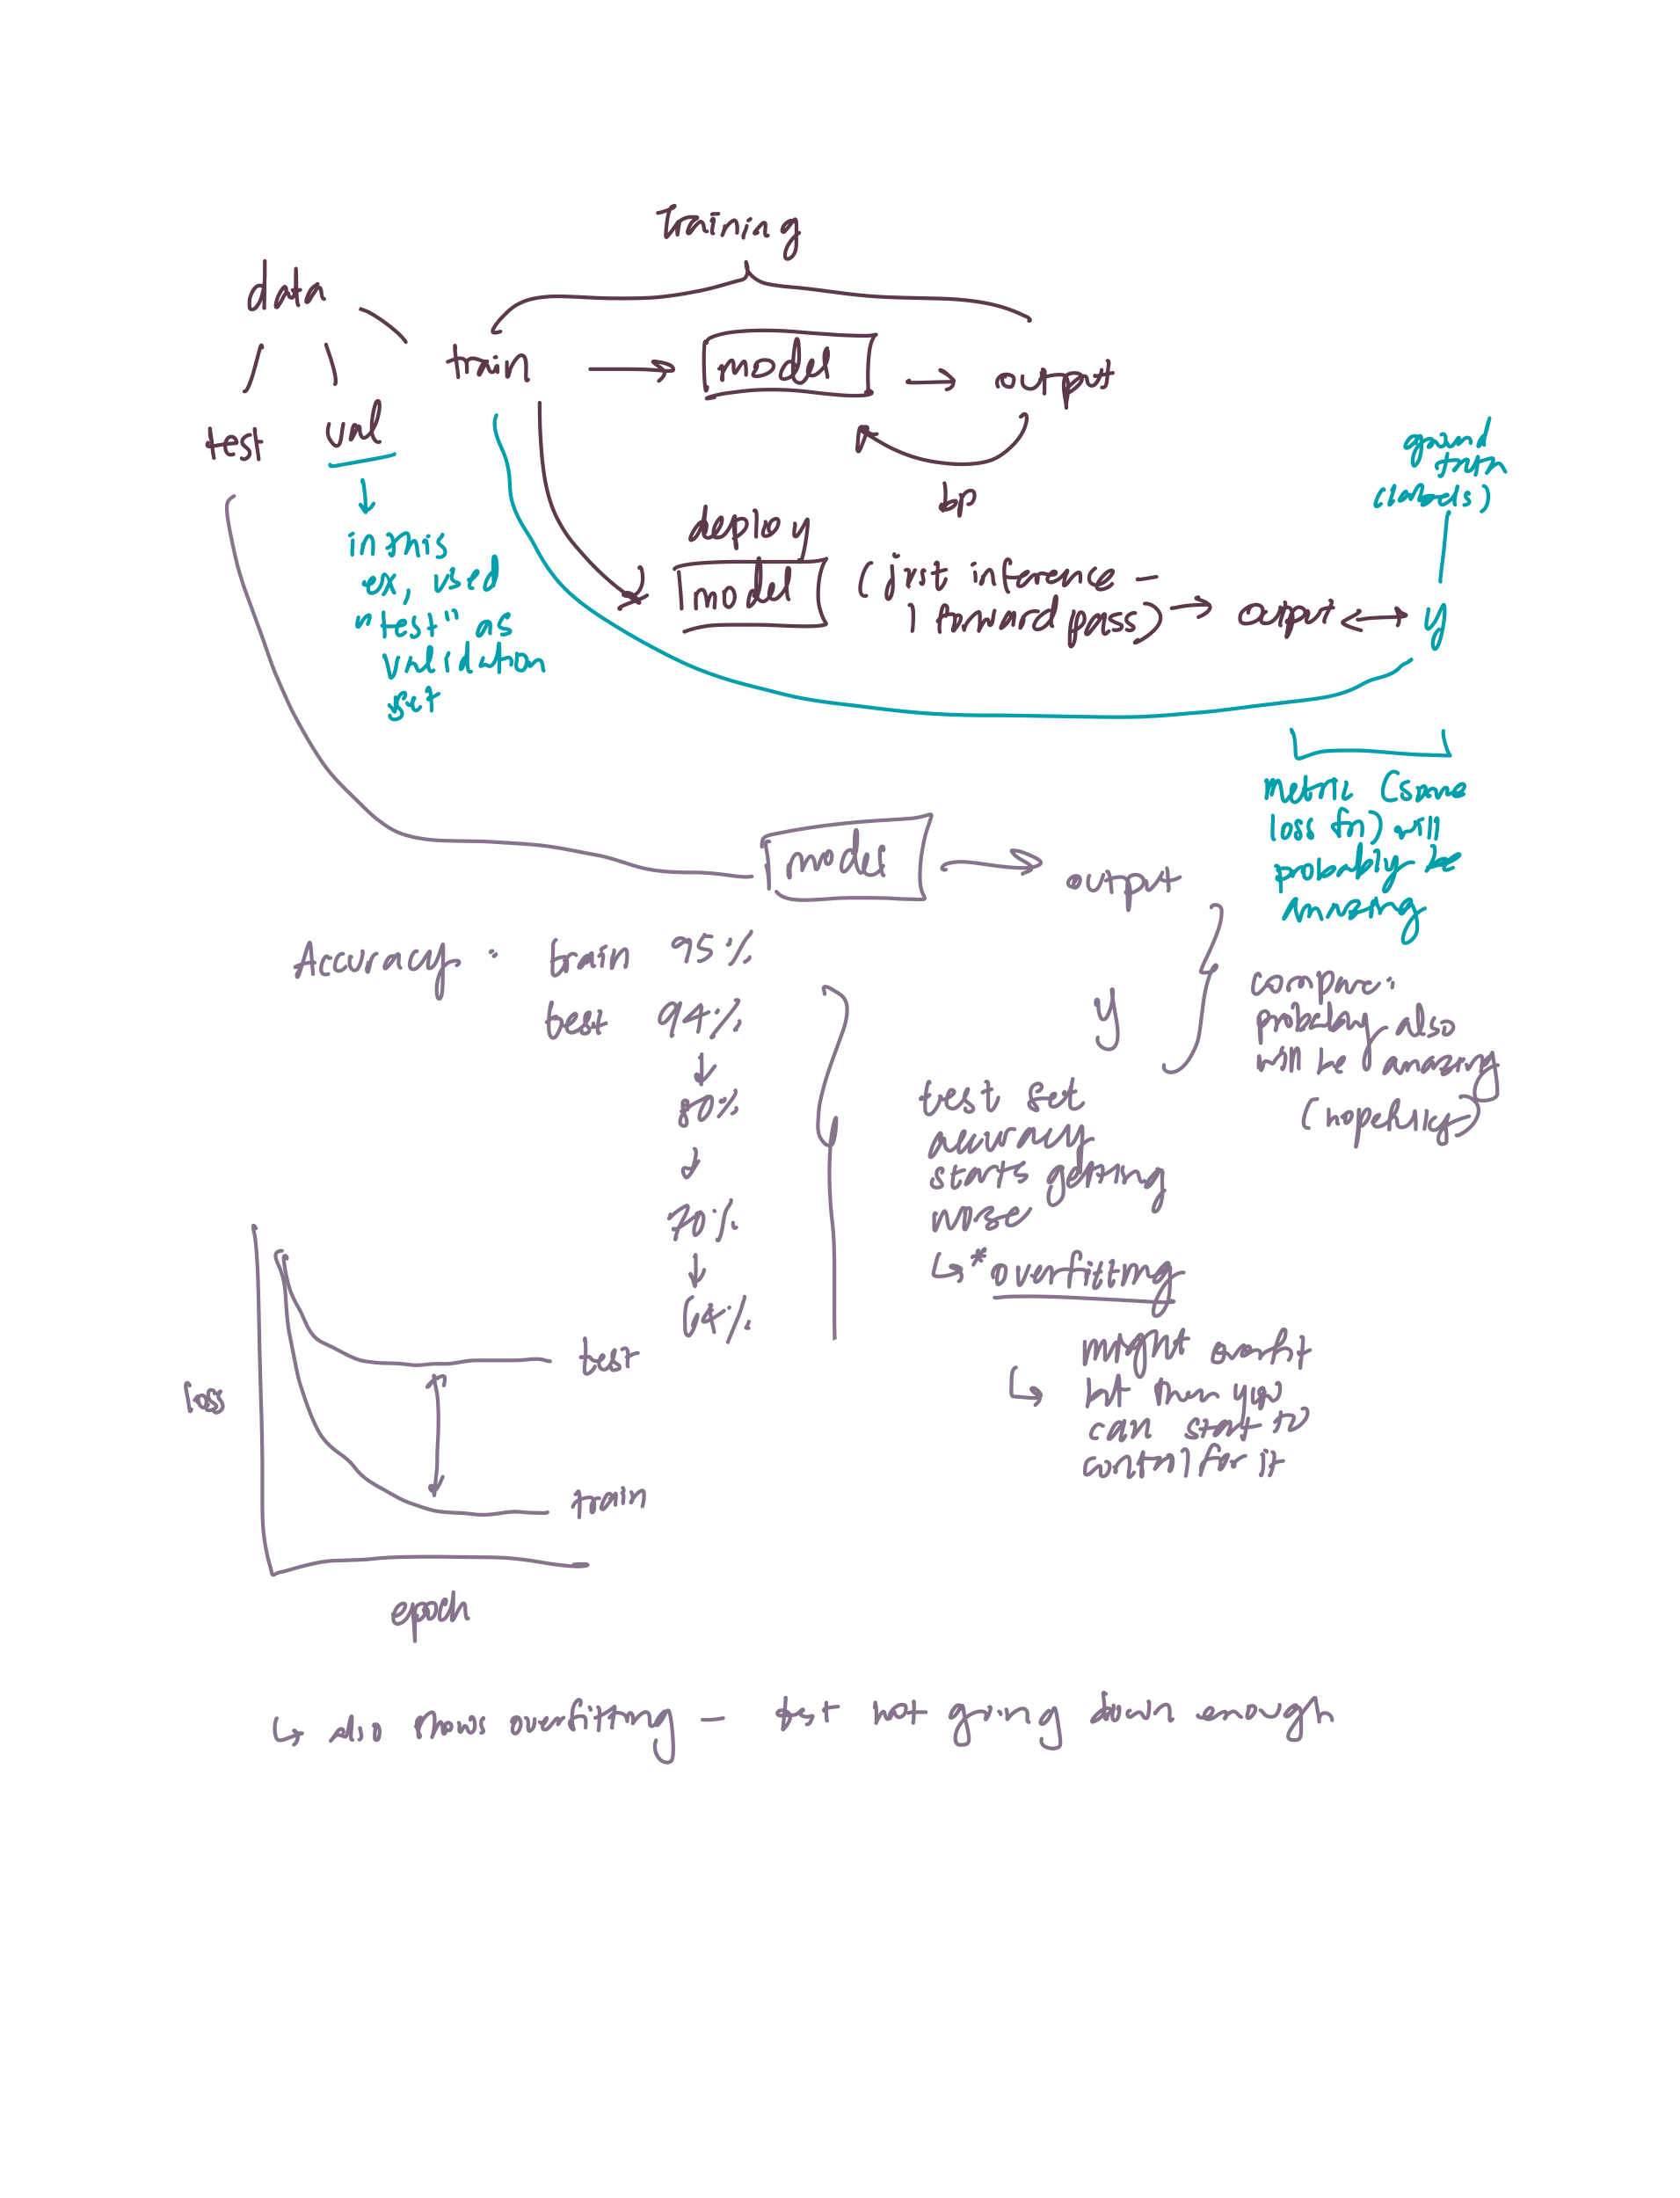 Training
data
train
model
output
test
val
bp
ground
truth
(labels)
in this
ex, used
"test" as
validation
set
deploy
model
(just inference –
1 forward pass)
output
y
metric (some
loss fn) will
probably be
amazing
model
output
y
compare:
probably also
will be amazing
(hopefully)
Accuracy: train 95%
test 94%
80%
70%
64%
test set
accuracy
starts getting
worse
*overfitting
might overfit
but then you
can start to
control for it
loss
test
train
epoch
also shows overfitting – test not going down enough